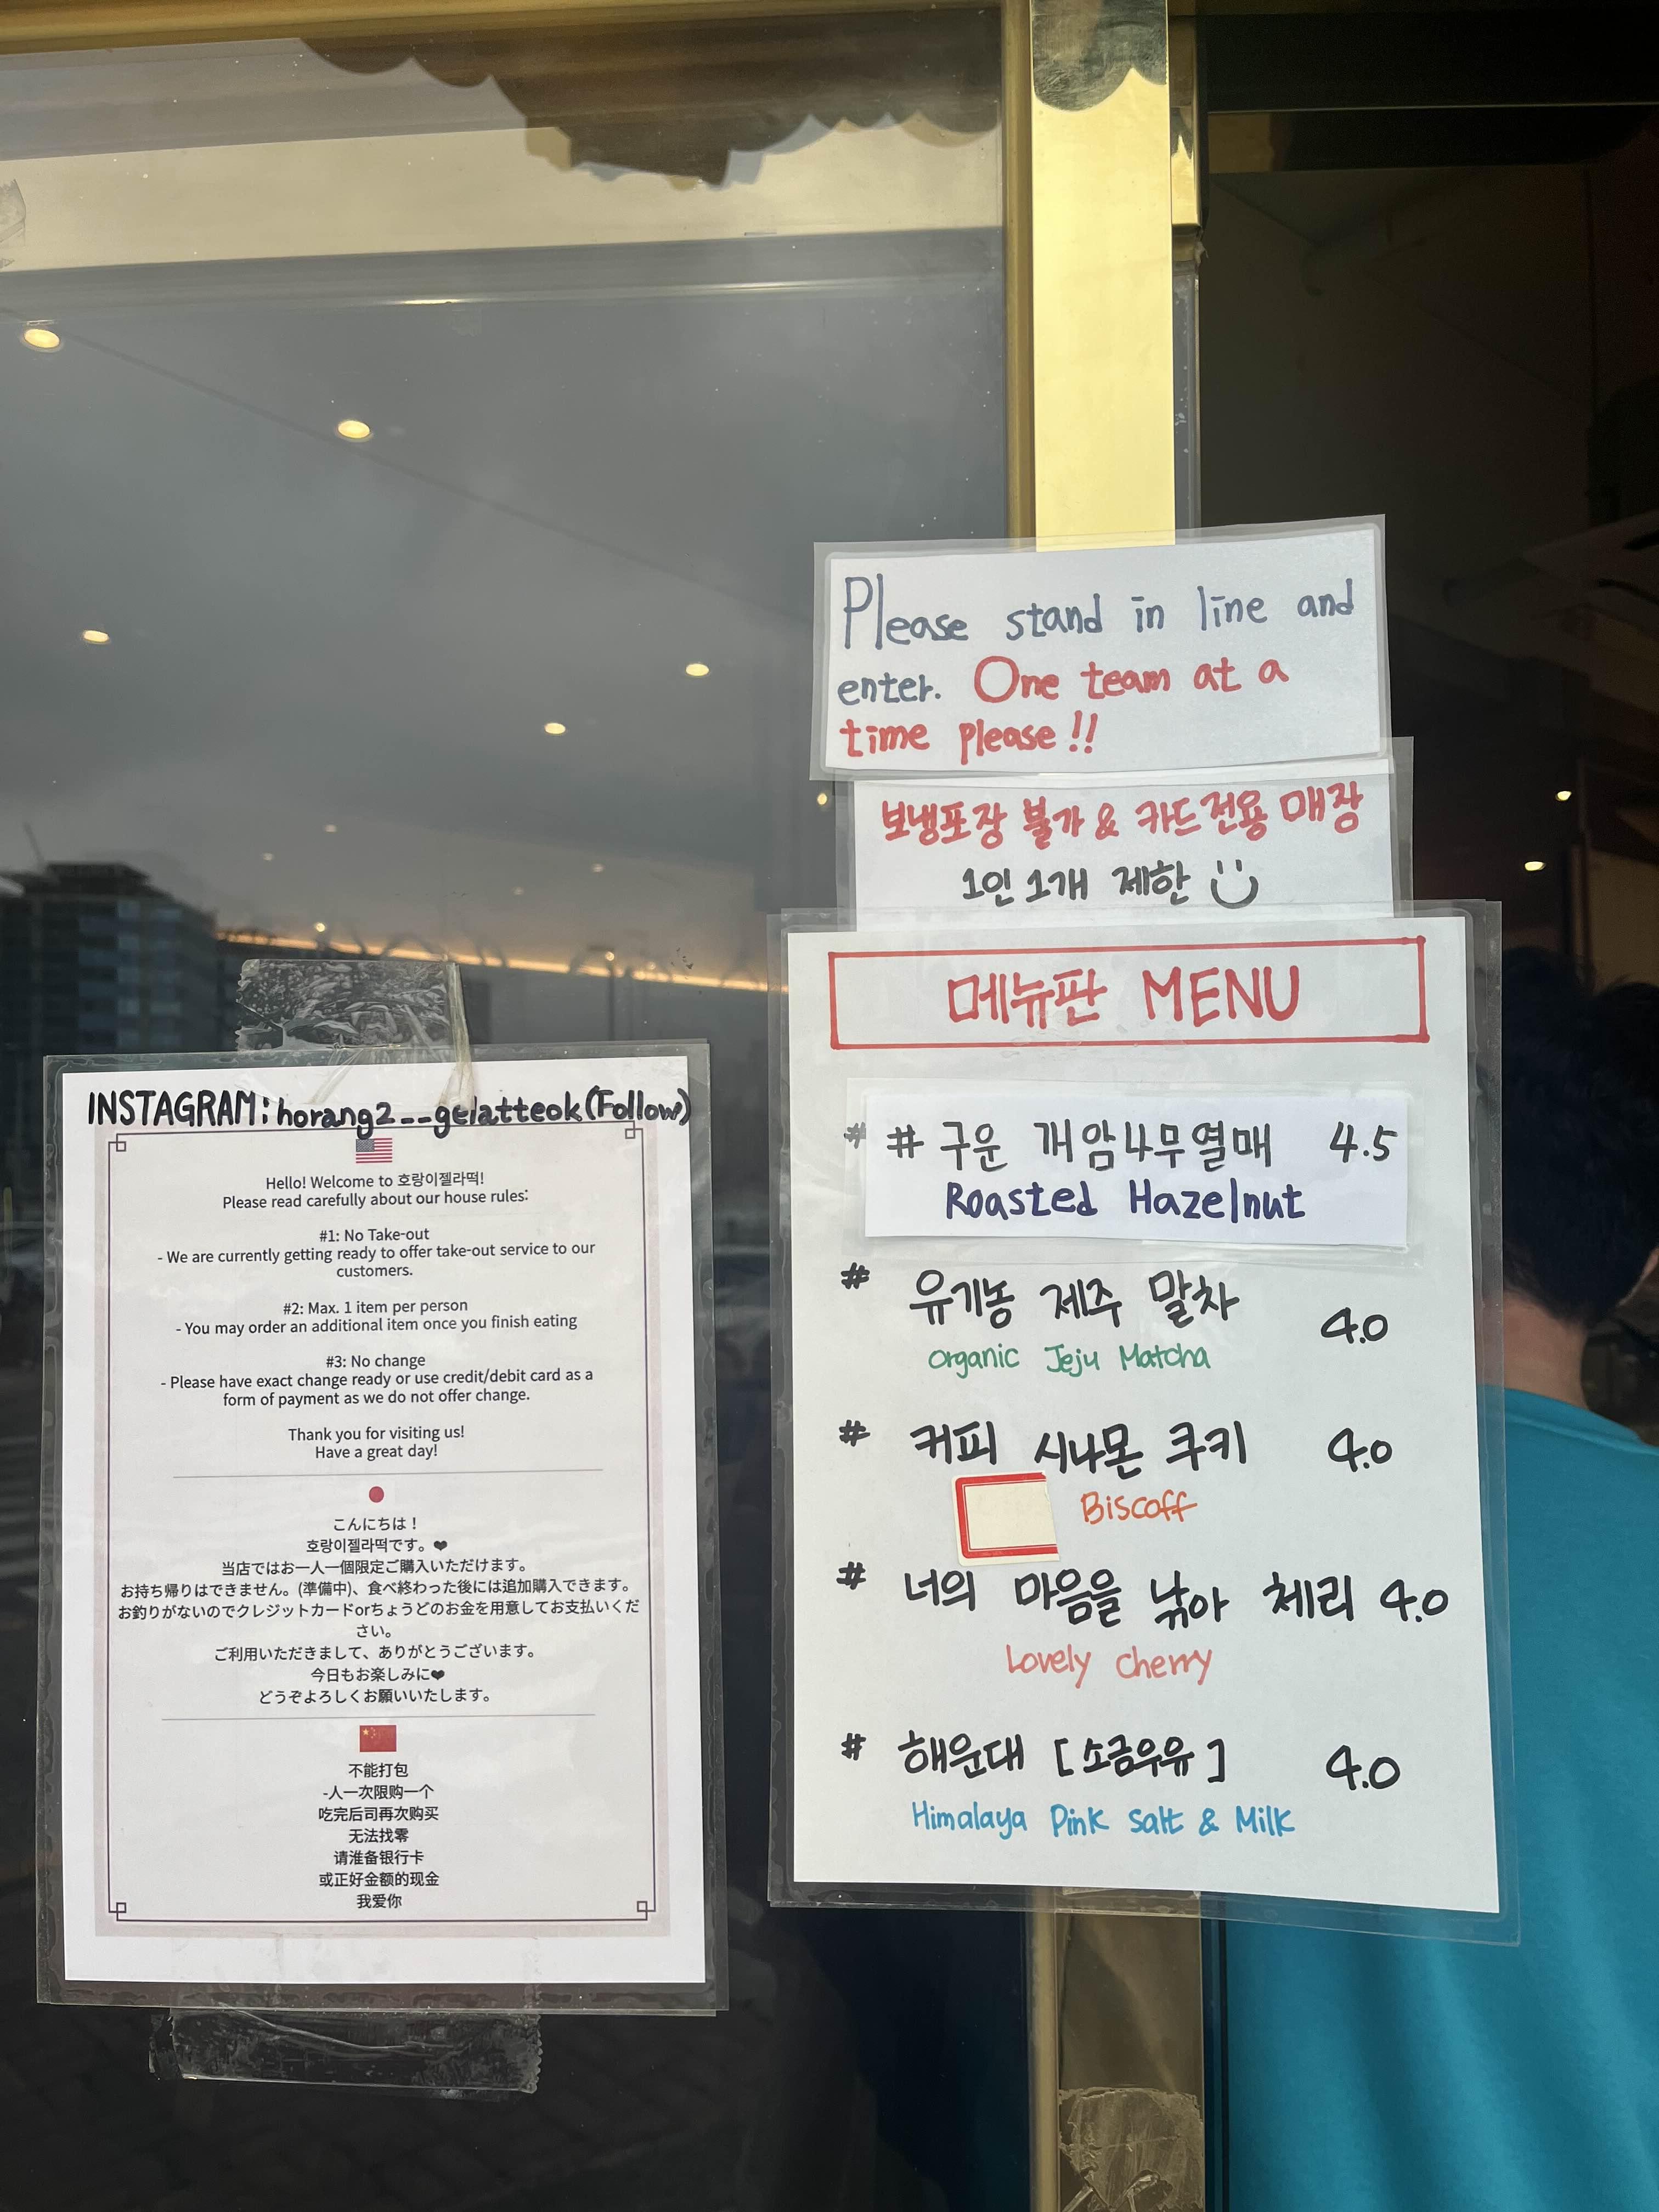 Please stand in line and
enter. One team at a
time please!!
보냉포장 불가 & 카드전용 매장
1인 1개 제한
메뉴판 MENU
# # 구운 개암나무열매 4.5
Roasted Hazelnut
# 유기농 제주 말차 4.0
Organic Jeju Matcha
# 커피 시나몬 쿠키 4.0
Biscoff
# 너의 마음을 낚아 체리 4.0
Lovely Cherry
# 해운대 [소금우유] 4.0
Himalaya Pink Salt & Milk
INSTAGRAM: horang2__gelatteok(Follow)
Hello! Welcome to 호랑이젤라떡!
Please read carefully about our house rules:
#1: No Take-out
- We are currently getting ready to offer take-out service to our
customers.
#2: Max. 1 item per person
- You may order an additional item once you finish eating
#3: No change
- Please have exact change ready or use credit/debit card as a
form of payment as we do not offer change.
Thank you for visiting us!
Have a great day!
こんにちは！
호랑이젤라떡です。❤
当店ではお一人一個限定ご購入いただけます。
お持ち帰りはできません。(準備中)、食べ終わった後には追加購入できます。
お釣りがないのでクレジットカードorちょうどのお金を用意してお支払いくだ
さい。
ご利用いただきまして、ありがとうございます。
今日もお楽しみに❤
どうぞよろしくお願いいたします。
不能打包
-人一次限购一个
吃完后司再次购买
无法找零
请淮备银行卡
或正好金额的现金
我爱你